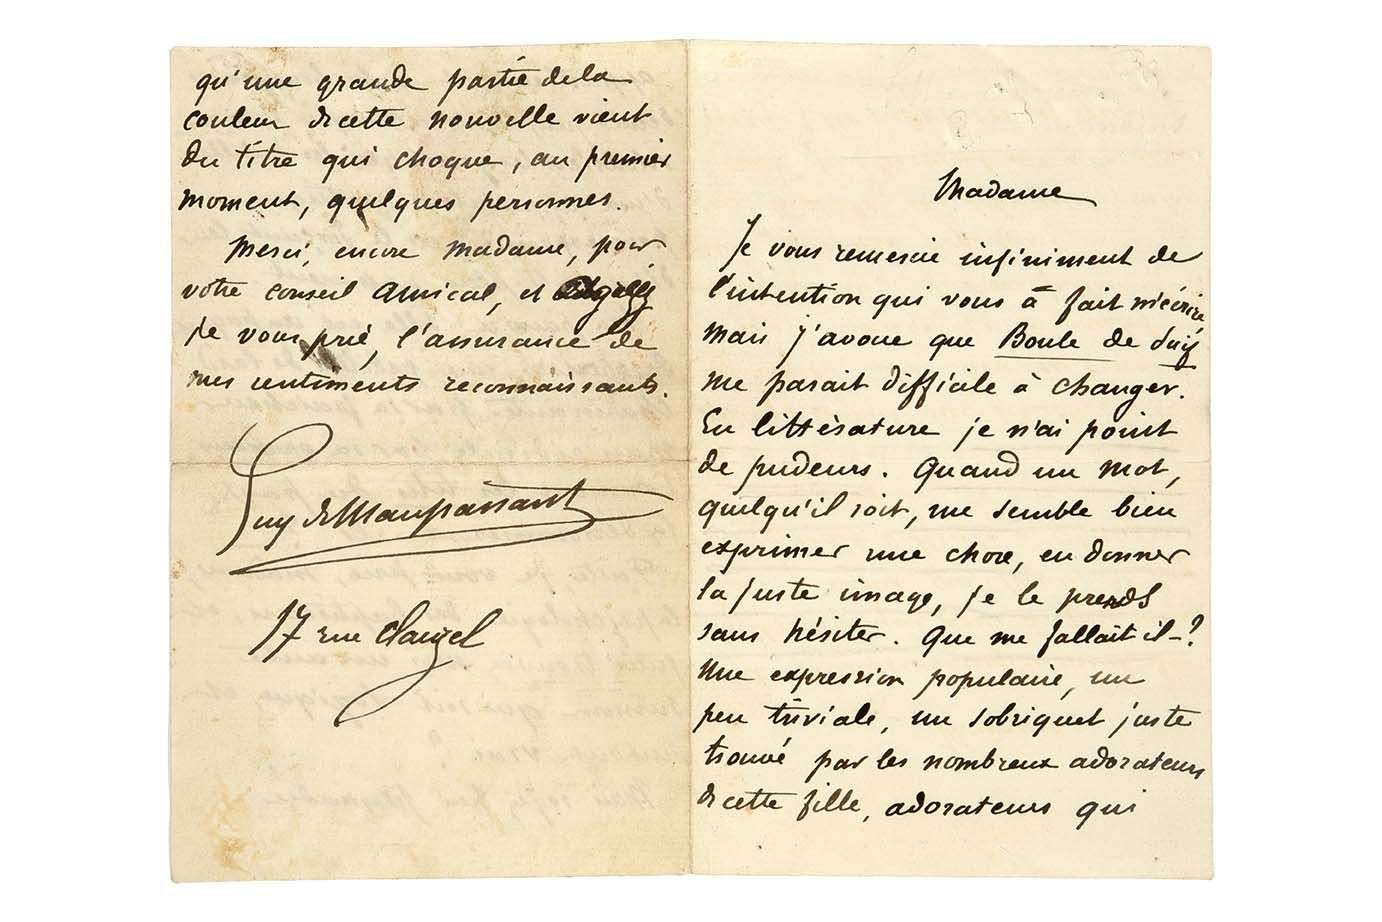 Madame
Je vous remercie infiniment de
l'intention qui vous à fait m'écrire
mais j'avoue que Boule de Suif
me parait difficile à changer.
En littérature je n'ai point
de pudeurs. Quand un mot,
quelqu'il soit, me semble bien
exprimer une chose, en donner
la juste image, je le prends
sans hésiter. Que me fallait il-?
Une expression populaire, un
peu triviale, un sobriquet juste
trouvé par les nombreux adorateurs
de cette fille, adorateurs qui
qu'une grande partie de la
couleur de cette nouvelle vient
du titre qui choque, au premier
moment, quelques personnes.
Merci, encore Madame, pour
votre conseil amical, et agréez
je vous prie, l'assurance de
mes sentiments reconnaissants.
Guy de Maupassant
17 rue Clauzel